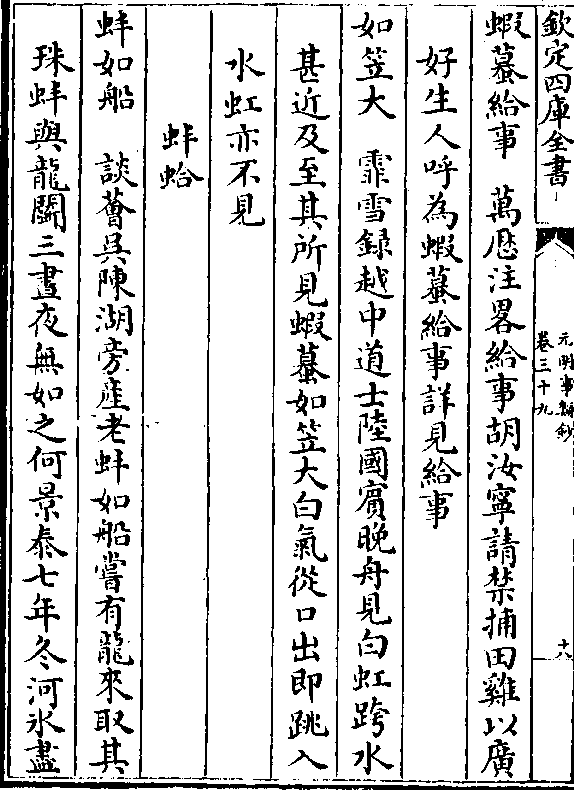 欽定四庫全書
元明事類鈔
卷三十九
十八
蝦蟇給事　萬厯注畧給事胡汝寧請禁捕田雞以廣
好生人呼為蝦蟇給事詳見給事
如笠大　霏雪録越中道士陸國賓晚舟見白虹跨水
甚近及至其所見蝦蟇如笠大白氣從口出即跳入
水虹亦不見
蚌蛤
蚌如船　談薈吳陳湖旁產老蚌如船嘗有龍來取其
珠蚌與龍鬭三晝夜無如之何景泰七年冬河氷盡